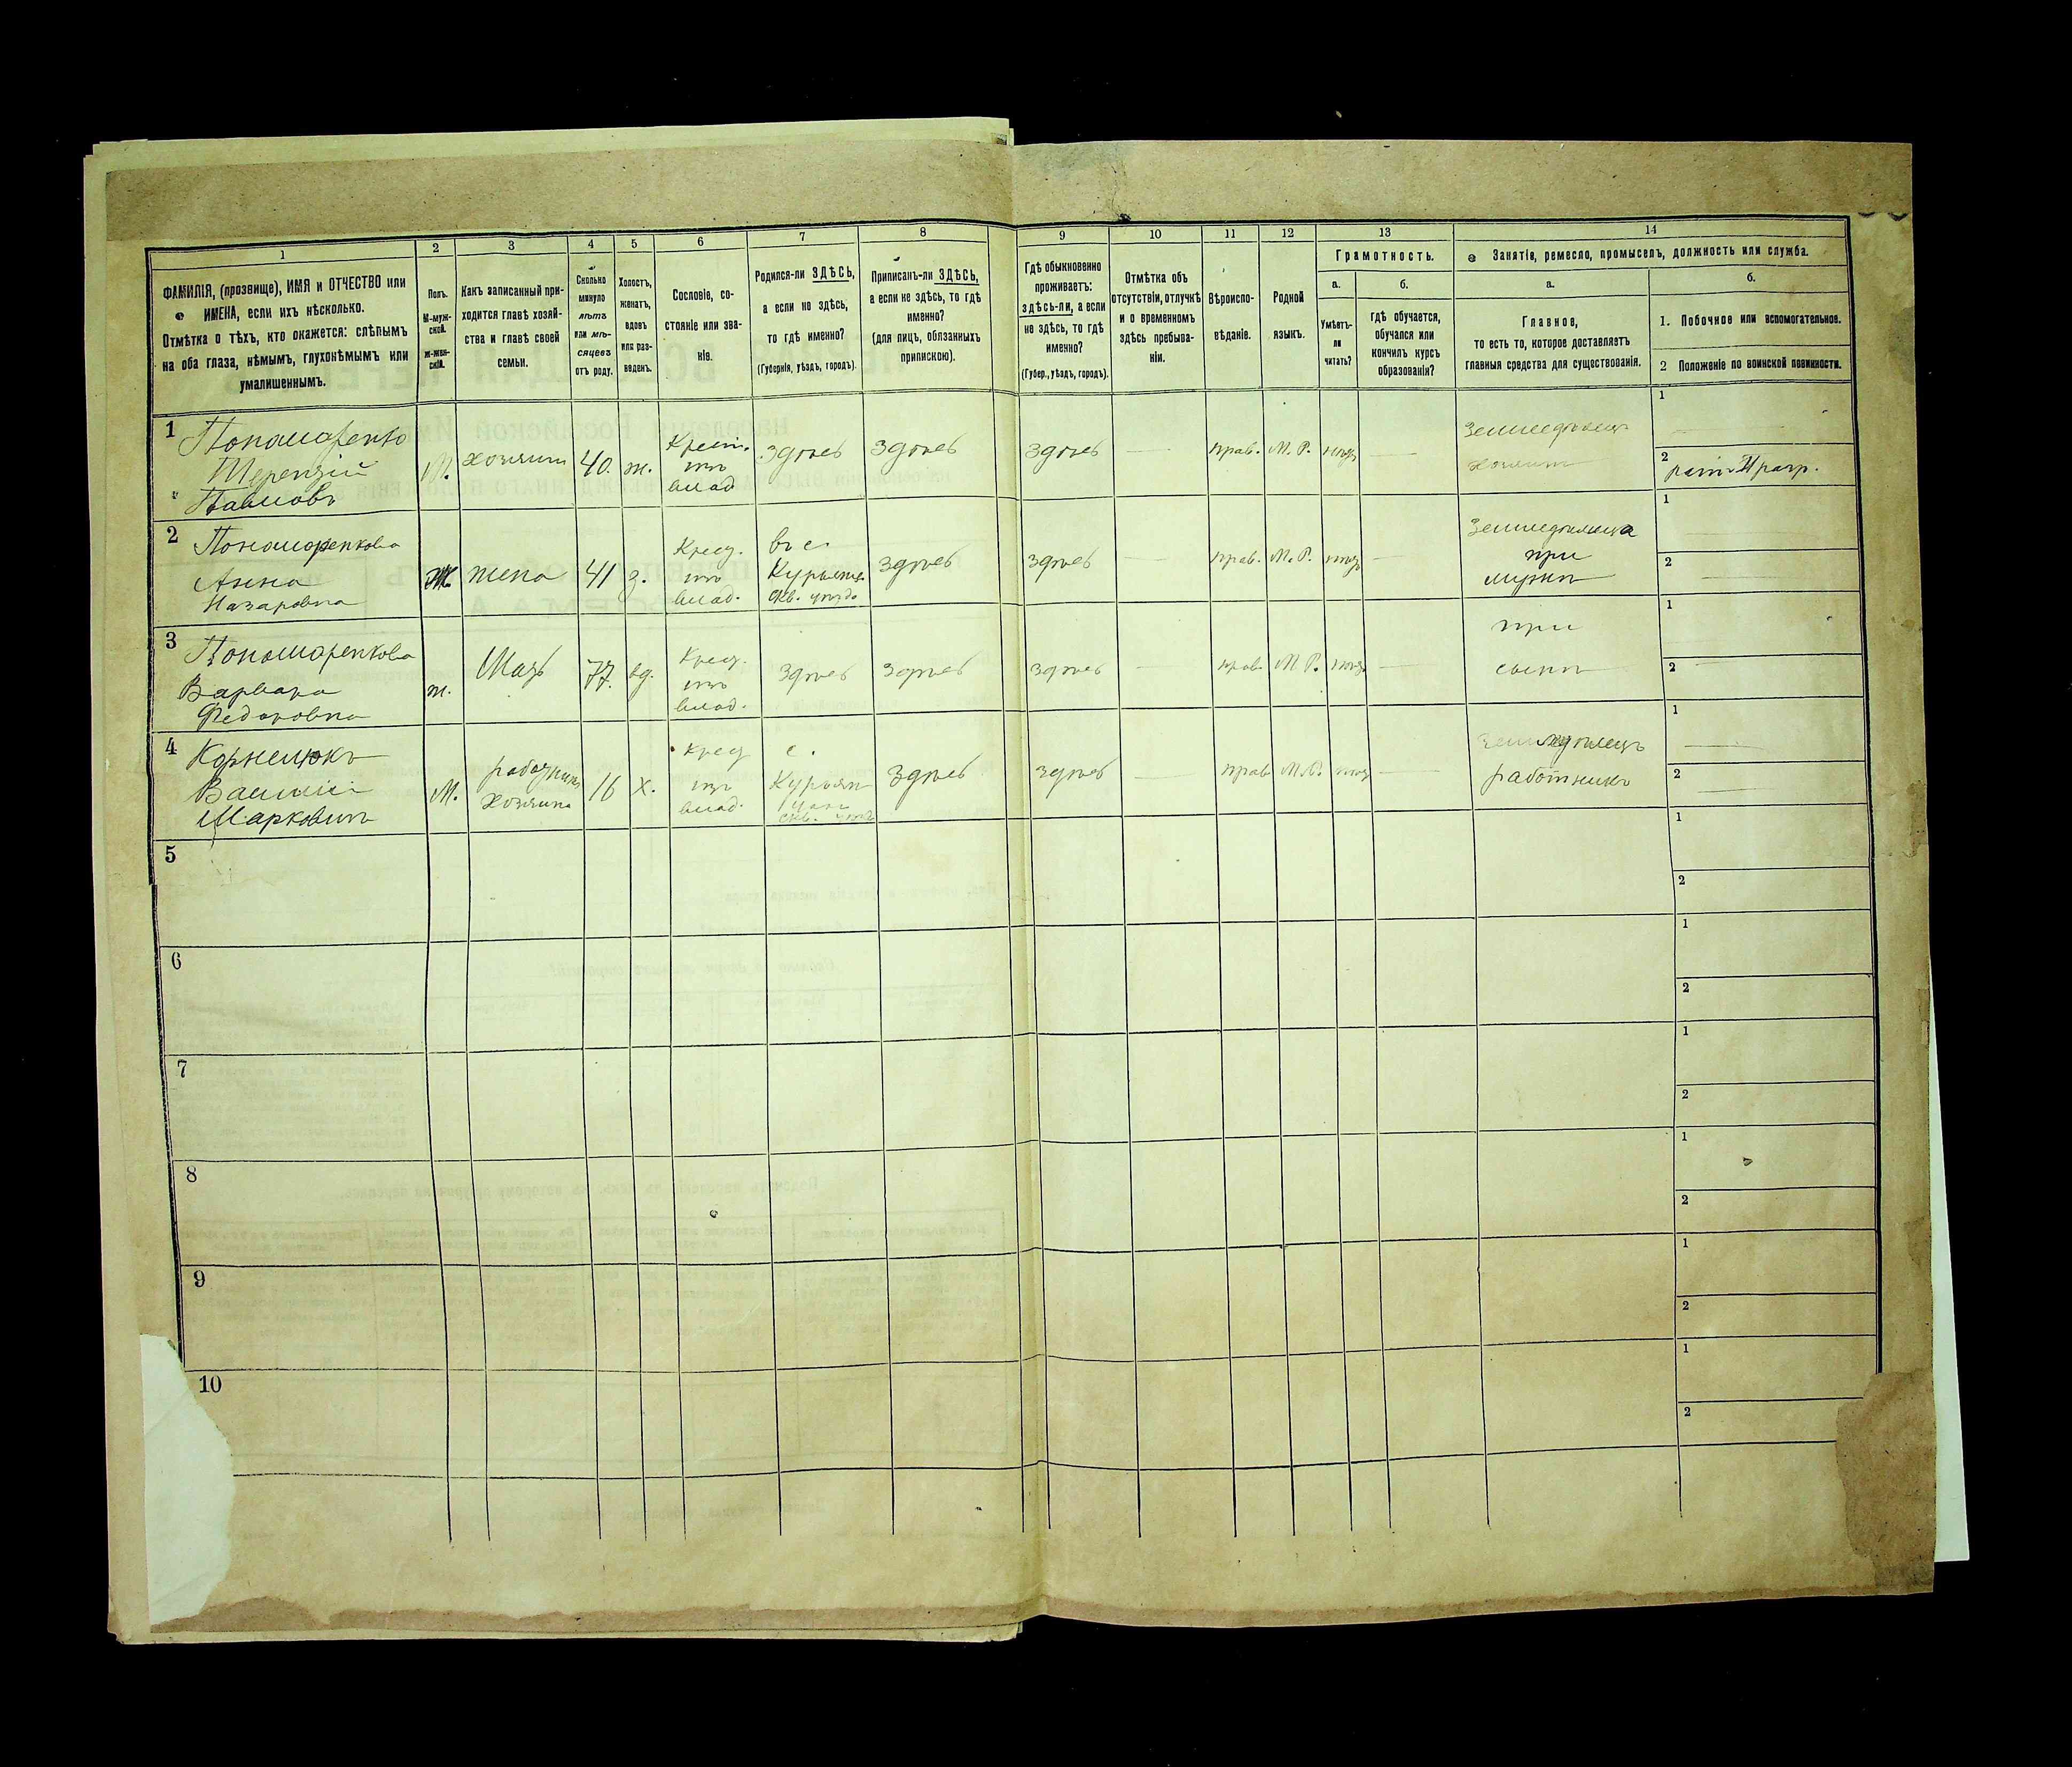 1 2 3 4 5 6 7 8 9 10 11 12 13 14
ФАМИЛІЯ, (прозвище), ИМЯ и ОТЧЕСТВО или
ИМЕНА, если ихъ нѣсколько.
Отмѣтка о тѣхъ, кто окажется: слѣпымъ
на оба глаза, нѣмымъ, глухонѣмымъ или
умалишеннымъ.
Полъ.
М-муж-
ской.
Ж-жен-
скій.
Какъ записанный при-
ходится главѣ хозяй-
ства и главѣ своей
семьи.
Сколько
минуло
лѣтъ
или мѣ-
сяцевъ
отъ роду.
Холостъ,
женатъ,
вдовъ
или раз-
веденъ.
Сословіе, со-
стояніе или зва-
ніе.
Родился-ли ЗДѢСЬ,
а если не здѣсь,
то гдѣ именно?
(Губернія, уѣздъ, городъ).
Приписанъ-ли ЗДѢСЬ,
а если не здѣсь, то гдѣ
именно?
(для лицъ, обязанныхъ
припискою).
Гдѣ обыкновенно
проживаетъ:
здѣсь-ли, а если
не здѣсь, то гдѣ
именно?
(Губер., уѣздъ, городъ).
Отмѣтка объ
отсутствіи, отлучкѣ
и о временномъ
здѣсь пребыва-
ніи.
Вѣроиспо-
вѣданіе.
Родной
языкъ.
Грамотность.
а.
Умѣетъ-
ли
читать?
б.
гдѣ обучается,
обучался или
кончилъ курсъ
образованія?
Занятіе, ремесло, промыселъ, должность или служба.
а.
Главное,
то есть то, которое доставляетъ
главныя средства для существованія.
б.
1. Побочное или вспомогательное.
2 Положеніе по воинской повинности.
1 Пономаренко
Терентій
Павловъ
М.
хозяинъ
40.
ж.
Крест.
изъ
влад
здѣсь
здѣсь
здѣсь
прав.
М. Р.
нѣтъ
Земледѣлецъ
хозяинъ
1
2
2 Пономаренкова
Анна
Назаровна
Ж.
жена
41
з.
Крест.
изъ
влад.
въ с.
скв. уѣзда
здѣсь
здѣсь
прав.
М. Р.
нѣтъ
при
мужѣ
1
2
3 Пономаренкова
Варвара
Федоровна
ж.
Мать
77.
вд.
Крест.
изъ
влад.
здѣсь
здѣсь
здѣсь
прав.
М Р.
нѣтъ
при
сынѣ
1
2
4 Корнелюкъ
Василій
Марковичъ
М.
работникъ
хозяина
16
х.
крест
изъ
влад.
с.
скв. уѣз
здѣсь
здѣсь
прав
М. Р.
нѣтъ
Земледѣлецъ
работникъ
1
2
5
1
2
6
1
2
7
1
2
8
1
2
9
1
2
10
1
2